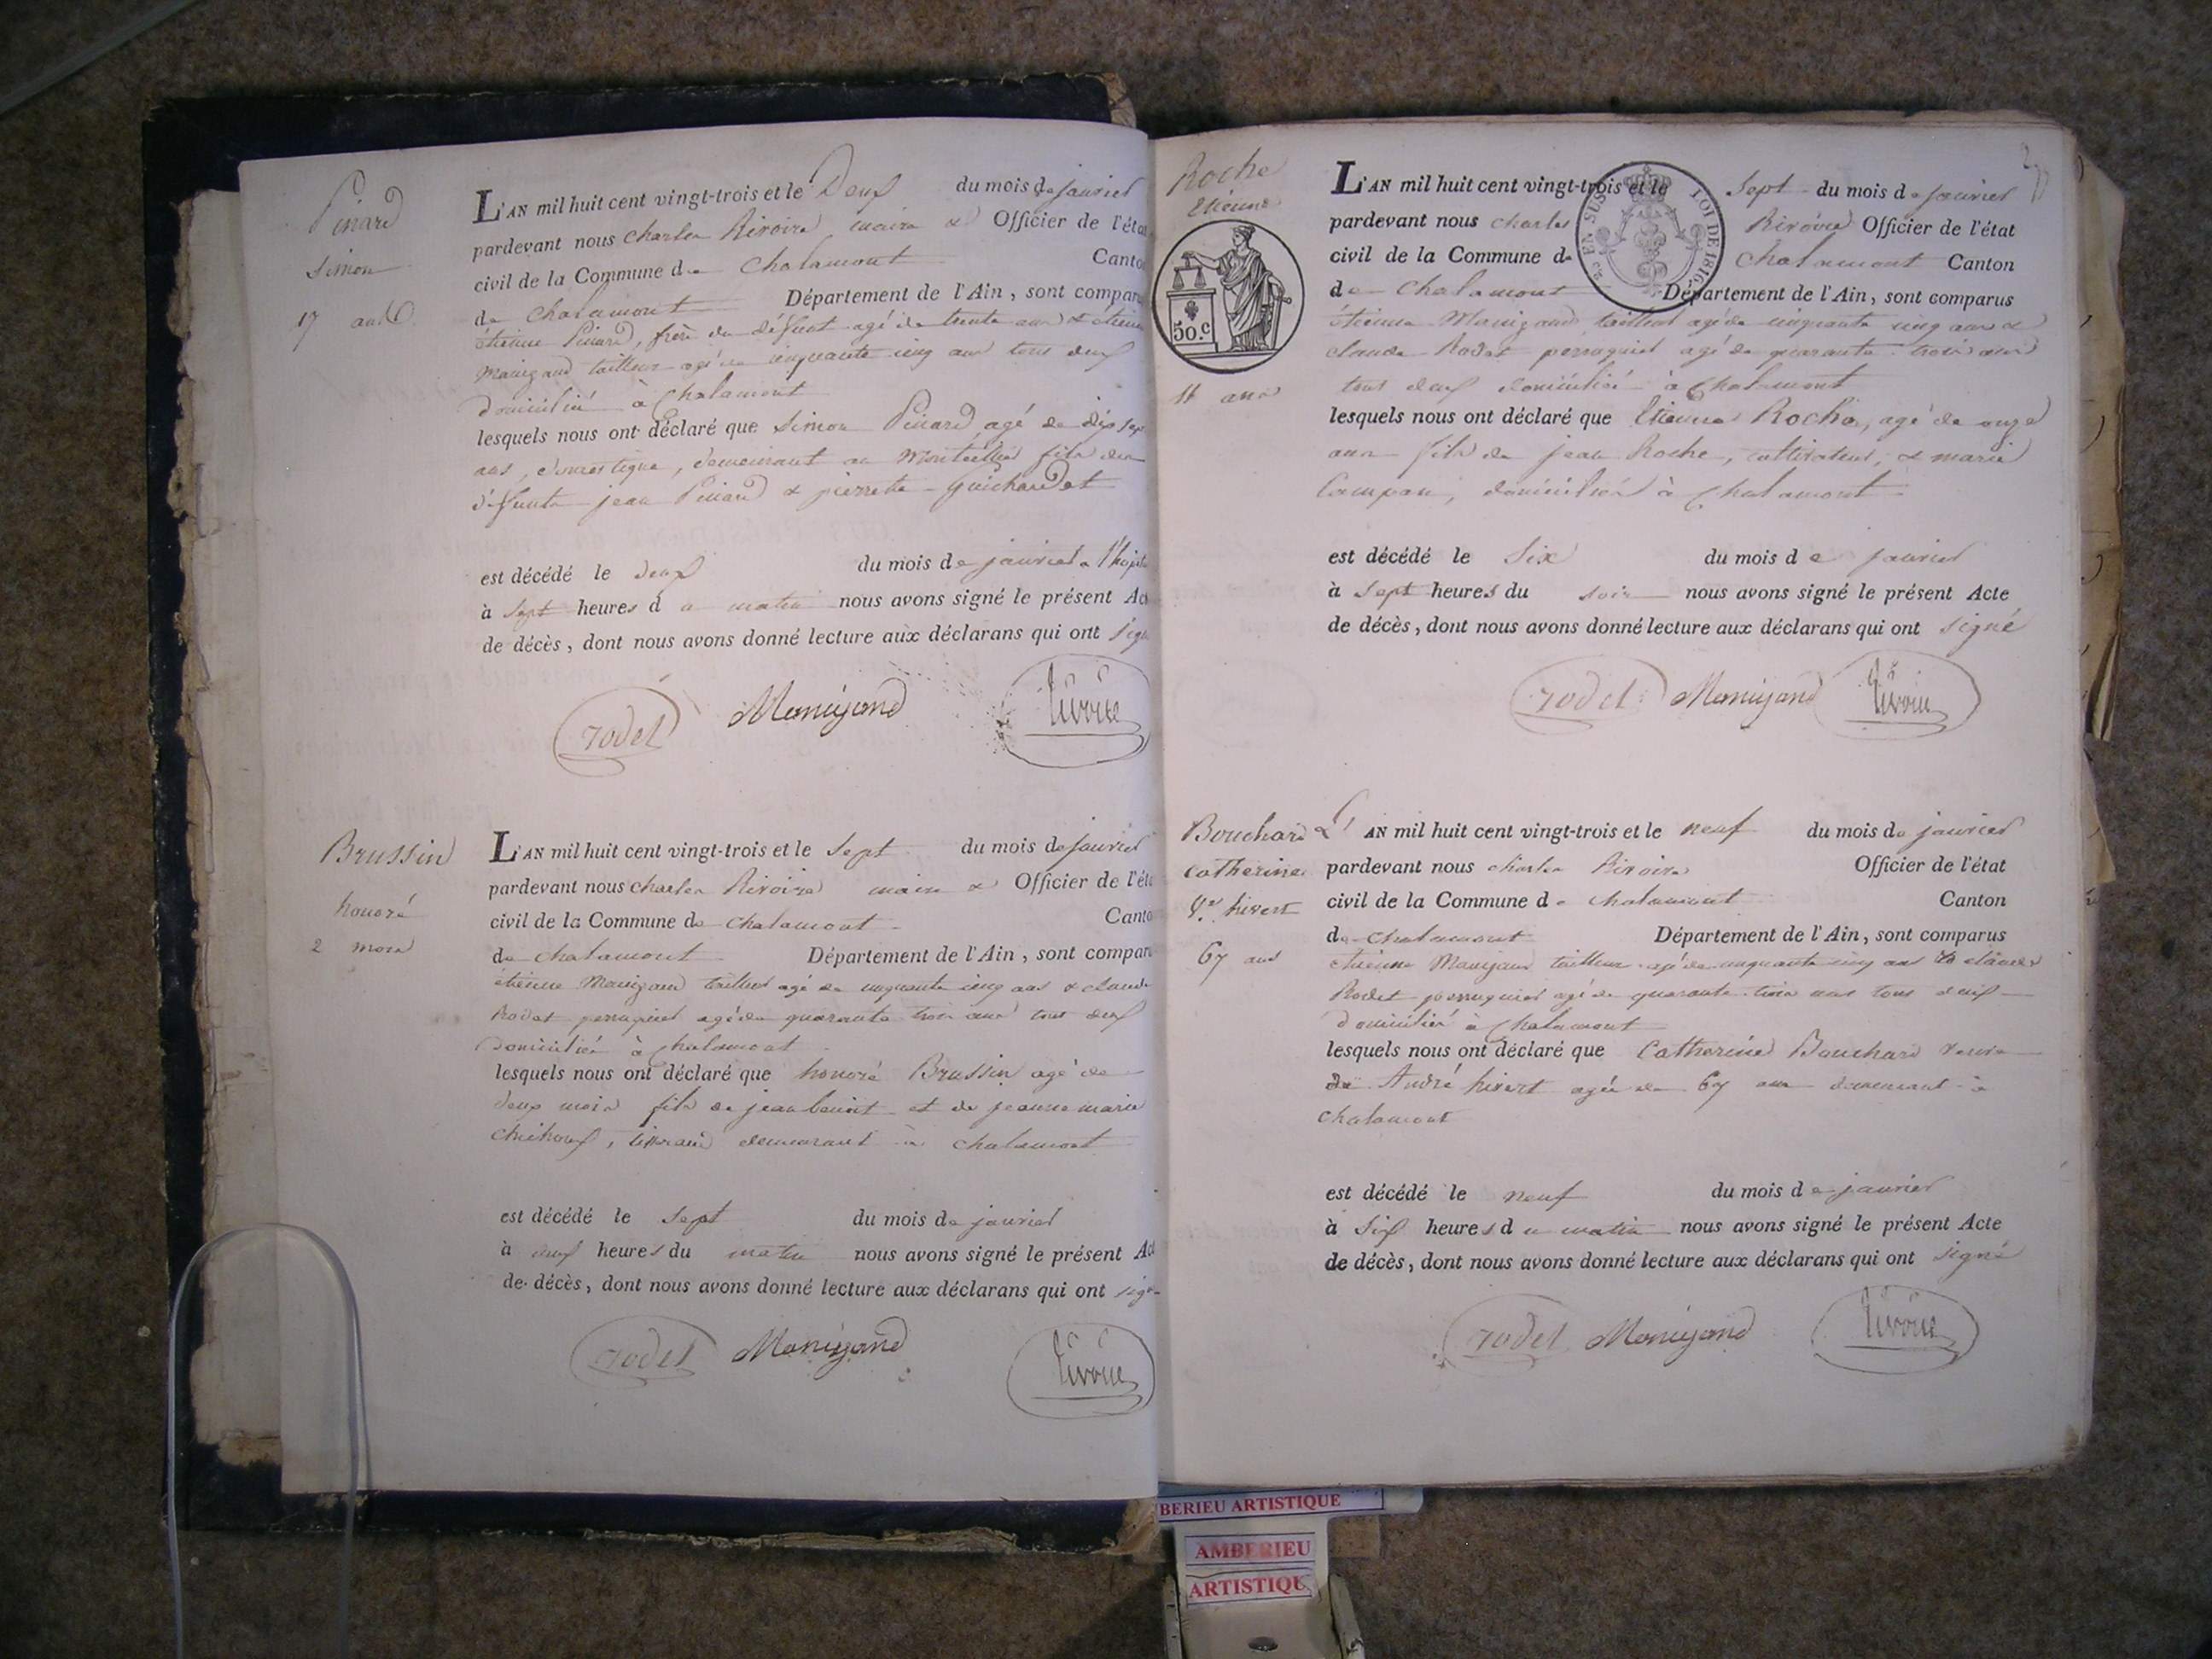 Pinard
Simon
17 ans
L'AN mil huit cent vingt-trois et le Deux du mois de janvier
pardevant nous Charles Rivoire maire & Officier de l'état
civil de la Commune de Chalamont Canton
de Chalamont Département de l'Ain, sont compar
étienne Pinard, frère du défunt agé de trente ans & étienne
Manigand tailleur agé de cinquante cinq ans tous deux
domicilié à Chalamont
lesquels nous ont déclaré que Simon Pinard agé de dix sept
ans, domestique, demeurant au fils de
défunts jean Pinard & pierrette Guichardet
est décédé le deux du mois de janvier a l'hopita
à sept heures du matin nous avons signé le présent Ac
de décès, dont nous avons donné lecture aux déclarans qui ont sign
rodet Manigand Rivoire
Brussin
honoré
2 mois
L'AN mil huit cent vingt-trois et le Sept du mois de janvier
pardevant nous Charles Rivoire maire & Officier de l'éta
civil de la Commune de Chalamont Canto
de Chalamont Département de l'Ain, sont compar
étienne Manigand tailleur agé de cinquante cinq ans & claude
Rodet perruquier agé de quarante trois ans tous deux
domiciliés à Chalamont
lesquels nous ont déclaré que honoré Brussin agé de
deux mois fils de jean benoit et de jeanne marie
demeurant à Chalamont
est décédé le Sept du mois de janvier
à heures du matin nous avons signé le présent Act
de décès, dont nous avons donné lecture aux déclarans qui ont sign
rodet Manigand Rivoire
Roche
Etienne
50.c
11 ans
L'AN mil huit cent vingt-trois et le Sept du mois de janvier
EN SUS LOI DE 1816
pardevant nous Charles Rivoire Officier de l'état
civil de la Commune de Chalamont Canton
de Chalamont Département de l'Ain, sont comparus
étienne Manigand tailleur agé de cinquante cinq ans &
claude Rodet perruquier agé de quarante trois ans
tous deux domiciliés à Chalamont
lesquels nous ont déclaré que Etienne Roche, agé de onze
ans fils de jean Roche, cultivateur, & marie
domiciliés à Chalamont
est décédé le Six du mois de janvier
à sept heures du soir nous avons signé le présent Acte
de décès, dont nous avons donné lecture aux déclarans qui ont signé
rodet Manigand Rivoire
Bouchard
Catherine
Ve. hivert
67 ans
L'AN mil huit cent vingt-trois et le neuf du mois de janvier
pardevant nous Charles Rivoire Officier de l'état
civil de la Commune de Chalamont Canton
de Chalamont Département de l'Ain, sont comparus
étienne Manigand tailleur agé de cinquante cinq ans & claude
Rodet perruquier agé de quarante trois ans tous deux
domicilié à Chalamont
lesquels nous ont déclaré que Catherine Bouchard veuve
de André hivert agée de 67 ans demeurant à
Chalamont
est décédé le neuf du mois de janvier
à Six heures du matin nous avons signé le présent Acte
de décès, dont nous avons donné lecture aux déclarans qui ont signé
rodet Manigand Rivoire
BERIEU ARTISTIQUE
AMBERIEU
ARTISTIQU